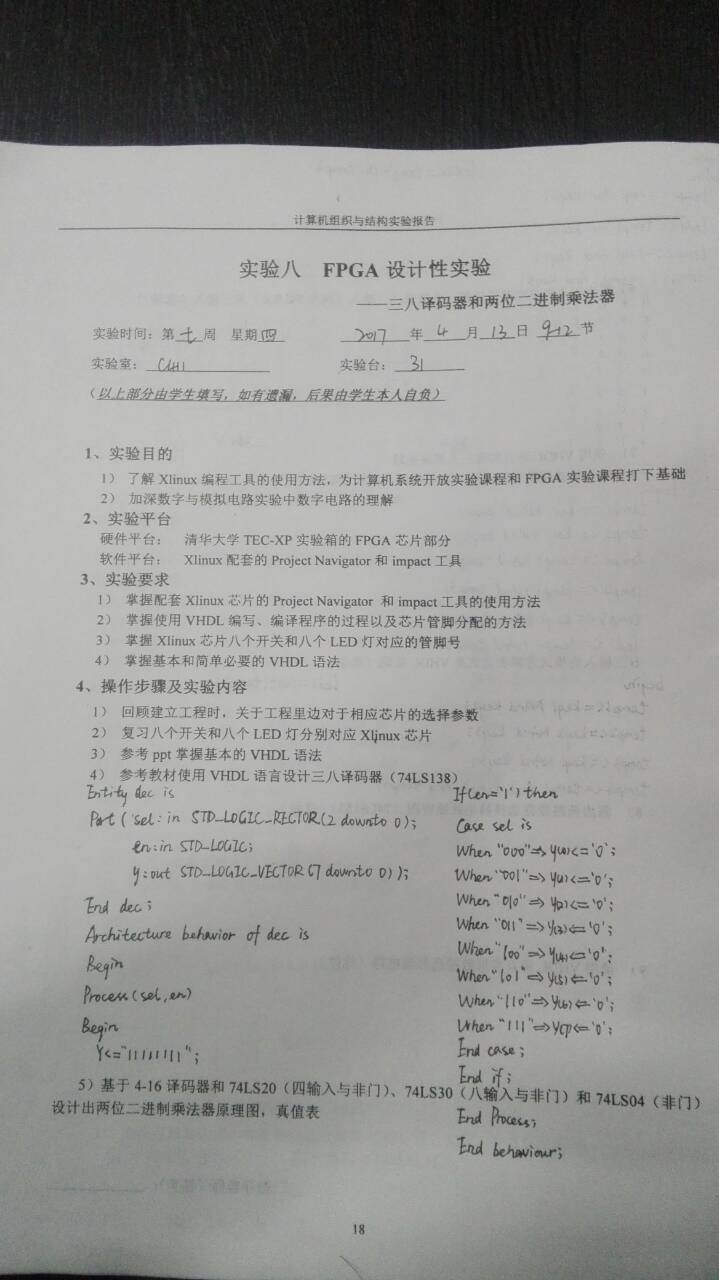 计算机组织与结构实验报告
实验八 FPGA 设计性实验
——三八译码器和两位二进制乘法器
实验时间：第 七 周 星期 四 2017 年 4 月 13 日 9-12 节
实验室： 实验台： 31
（以上部分由学生填写，如有遗漏，后果由学生本人自负）
1、实验目的
1） 了解 Xlinux 编程工具的使用方法，为计算机系统开放实验课程和 FPGA 实验课程打下基础
2） 加深数字与模拟电路实验中数字电路的理解
2、实验平台
硬件平台： 清华大学 TEC-XP 实验箱的 FPGA 芯片部分
软件平台： Xlinux 配套的 Project Navigator 和 impact 工具
3、实验要求
1） 掌握配套 Xlinux 芯片的 Project Navigator 和 impact 工具的使用方法
2） 掌握使用 VHDL 编写、编译程序的过程以及芯片管脚分配的方法
3） 掌握 Xlinux 芯片八个开关和八个 LED 灯对应的管脚号
4） 掌握基本和简单必要的 VHDL 语法
4、操作步骤及实验内容
1） 回顾建立工程时，关于工程里边对于相应芯片的选择参数
2） 复习八个开关和八个 LED 灯分别对应 Xlinux 芯片
3） 参考 ppt 掌握基本的 VHDL 语法
4） 参考教材使用 VHDL 语言设计三八译码器（74LS138）
Entity dec is
Port ( sel: in STD_LOGIC_RECTOR(2 downto 0);
en: in STD_LOGIC;
y: out STD_LOGIC_VECTOR(7 downto 0));
End dec;
Architecture behavior of dec is
Begin
Process(sel,en)
Begin
Y<="11111111";
If(en='1') then
Case sel is
When "000"=> y(0)<='0';
When "001"=> y(1)<='0';
When "010"=> y(2)<='0';
When "011"=> y(3)<='0';
When "100"=> y(4)<='0';
When "101"=> y(5)<='0';
When "110"=> y(6)<='0';
When "111"=> y(7)<='0';
End case;
End if;
End Process;
End behaviour;
5）基于 4-16 译码器和 74LS20（四输入与非门）、74LS30（八输入与非门）和 74LS04（非门）
设计出两位二进制乘法器原理图，真值表
18